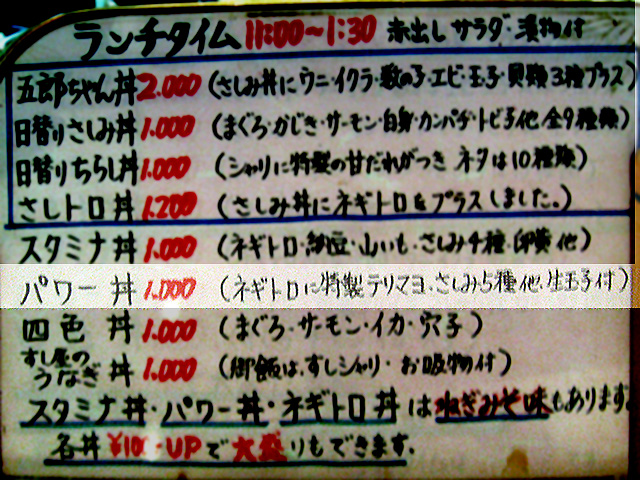 ランチタイム 11:00～1:30 赤出し サラダ・漬物付
五郎ちゃん丼 2.000 (さしみ丼にウニ・イクラ・数の子・エビ・玉子・貝類3種プラス)
日替りさしみ丼 1.000 (まぐろ・かじき・サーモン・白身・カンパチ・トビ子他 全9種類)
日替りちらし丼 1.000 (シャリに特製の甘だれがつき ネタは10種類)
さしトロ丼 1.200 (さしみ丼にネギトロをプラスしました。)
スタミナ丼 1.000 (ネギトロ・納豆・山いも・さしみ4種・卵黄他)
パワー丼 1.000 (ネギトロに特製テリマヨ・さしみ5種他・生玉子付)
四色丼 1.000 (まぐろ・サーモン・イカ・穴子)
すし屋のうなぎ丼 1.000 (御飯は、すしシャリ・お吸物付)
スタミナ丼・パワー丼・ネギトロ丼はねぎみそ味もあります。
各丼 ¥100-UPで大盛りもできます。